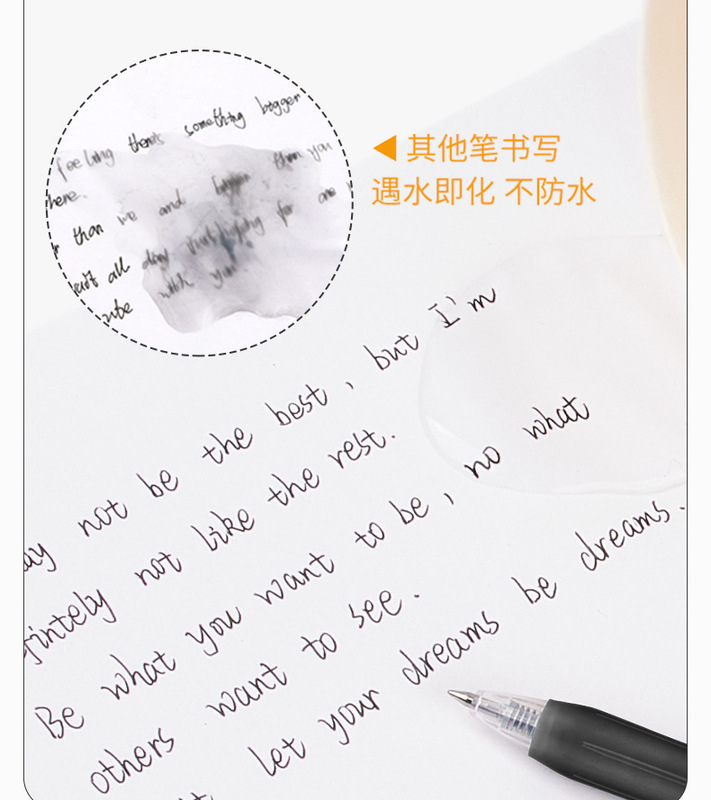 feeling there's something bigger
here.
than me and bigger than you
all day
with you
其他笔书写
遇水即化 不防水
not be the best, but I'm
not like the rest.
Be what you want to be, no what
others want to see.
let your dreams be dreams.